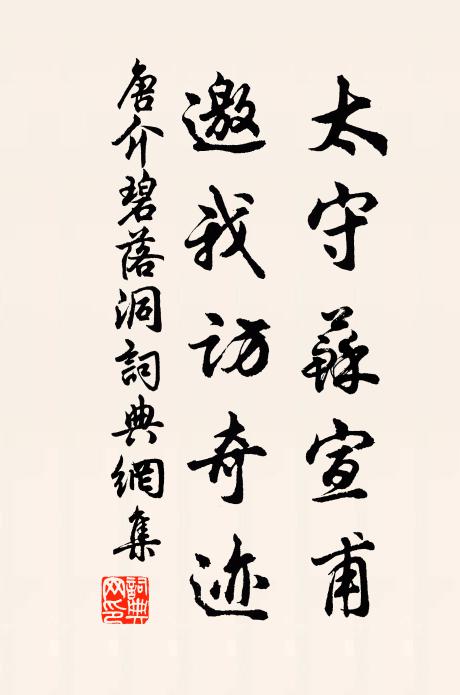 太守蘇宣甫
邀我訪奇迹
唐介碧落洞詞典網集
詞典网印